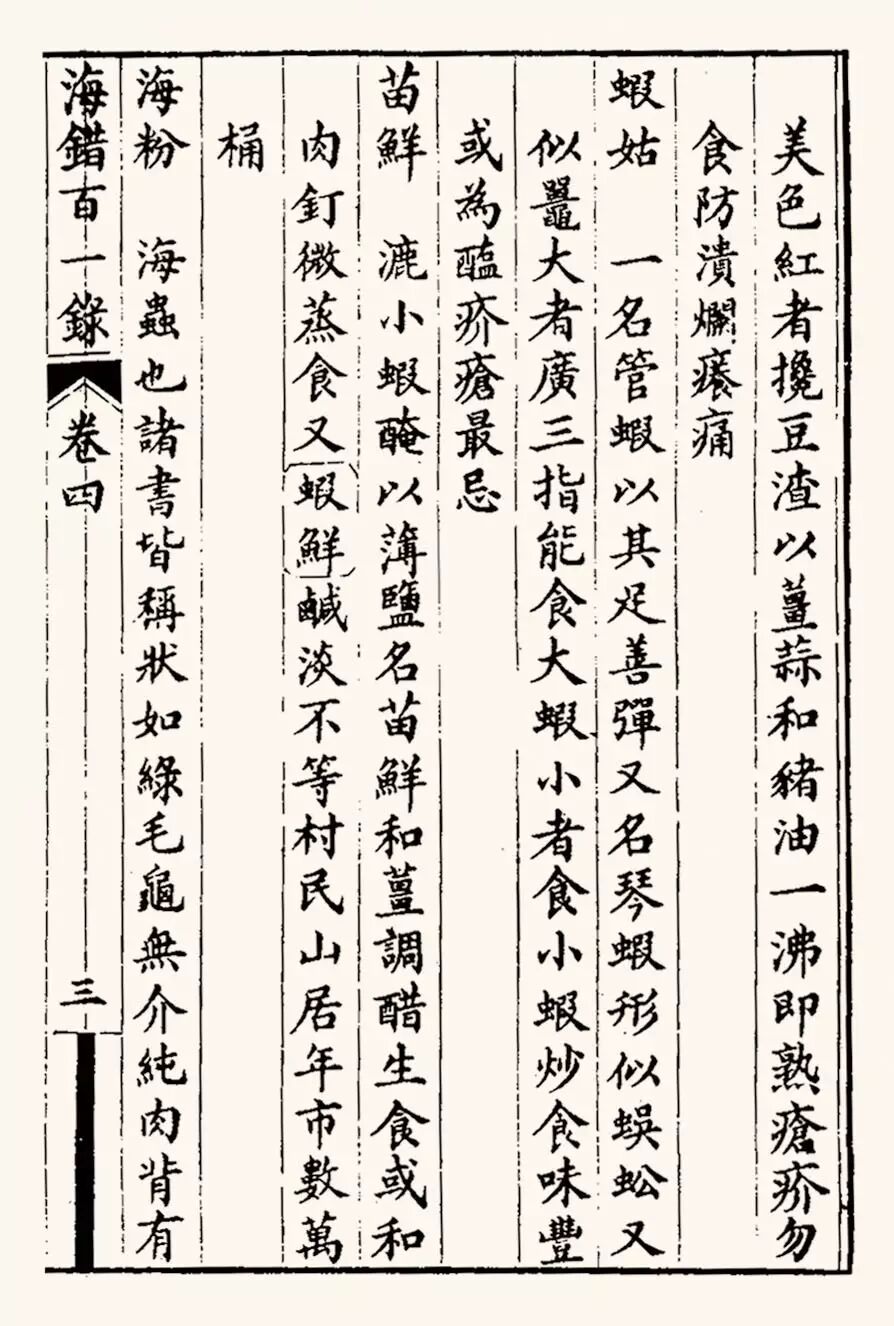 美色紅者攙豆渣以薑蒜和豬油一沸即熟瘡疥勿
食防潰爛癢痛
蝦姑　一名管蝦以其足善彈又名琴蝦形似蜈蚣又
似鼉大者廣三指能食大蝦小者食小蝦炒食味豐
或為醢疥瘡最忌
苗鮮　漉小蝦醃以薄鹽名苗鮮和薑調醋生食或和
肉飣微蒸食又蝦鮮鹹淡不等村民山居年市數萬
桶
海粉　海蟲也諸書皆稱狀如綠毛龜無介純肉背有
海錯百一錄　卷四　三